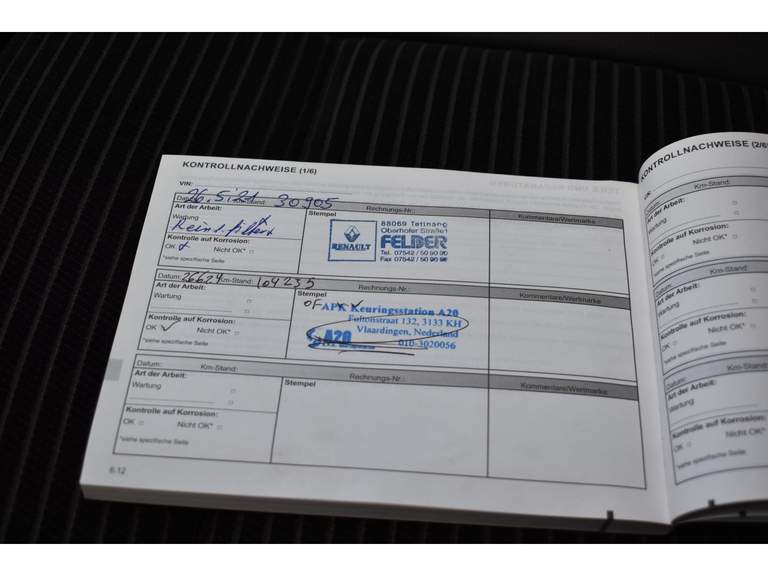 KONTROLLNACHWEISE (1/6)
VIN:
Datum: 26.5.21 Km-Stand: 30905 Rechnungs-Nr.: Kommentare/Wertmarke
Art der Arbeit: Stempel
Wartung x
Kontrolle auf Korrosion:
OK Nicht OK*
*siehe spezifische Seite
RENAULT
88069 Tettnang
Oberhofer Straße
FELBER
Tel. 07542 /
Fax 07542 /
Datum: 26624 Km-Stand: 104235 Rechnungs-Nr.: Kommentare/Wertmarke
Art der Arbeit: Stempel
Wartung
Kontrolle auf Korrosion:
OK Nicht OK*
*siehe spezifische Seite
OF
APK Keuringsstation A20
Fultonstraat 132, 3133 KH
Vlaardingen, Nederland
A20 010-3020056
Datum: Km-Stand: Rechnungs-Nr.: Kommentare/Wertmarke
Art der Arbeit: Stempel
Wartung
Kontrolle auf Korrosion:
OK Nicht OK*
*siehe spezifische Seite
6.12
KONTROLLNACHWEISE (2/6
Km-Stand:
Art der Arbeit:
Wartung
Kontrolle auf Korrosion:
OK Nicht OK*
*siehe spezifische Seite
Datum: Km-Stand:
Art der Arbeit:
Wartung
Kontrolle auf Korrosion:
OK Nicht OK*
*siehe spezifische Seite
Datum: Km-Stand:
Art der Arbeit:
Wartung
Kontrolle auf Korrosion:
OK Nicht OK*
*siehe spezifische Seite